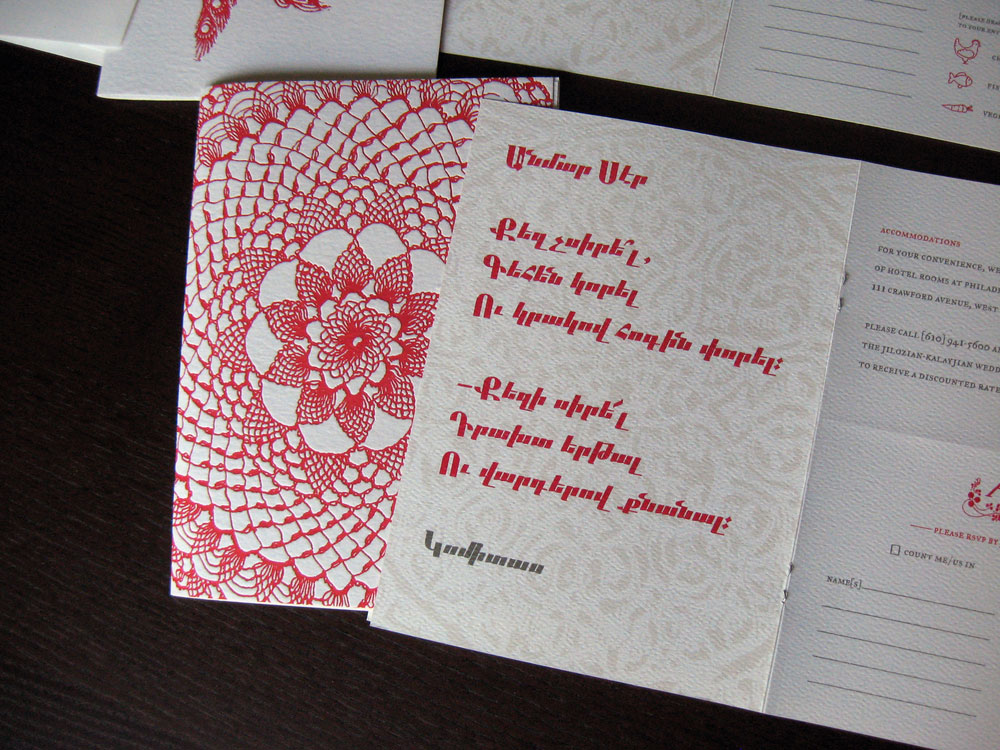 Անմար Սէր
Քեզ չսիրե՞լ,
Գեհէն կորել
Ու կրակով հոգին փորել։
—Քեզի սիրե՜լ
Դրախտ երթալ
Ու վարդերով քնանալ։
Կոմիտաս
ACCOMMODATIONS
FOR YOUR CONVENIENCE, WE
OF HOTEL ROOMS AT
111 CRAWFORD AVENUE, WEST
PLEASE CALL [610] 941-5600
THE JILOZIAN-KALAYJIAN
TO RECEIVE A DISCOUNTED
PLEASE RSVP BY
COUNT ME/US IN
NAME[S]
[PLEASE
TO YOUR